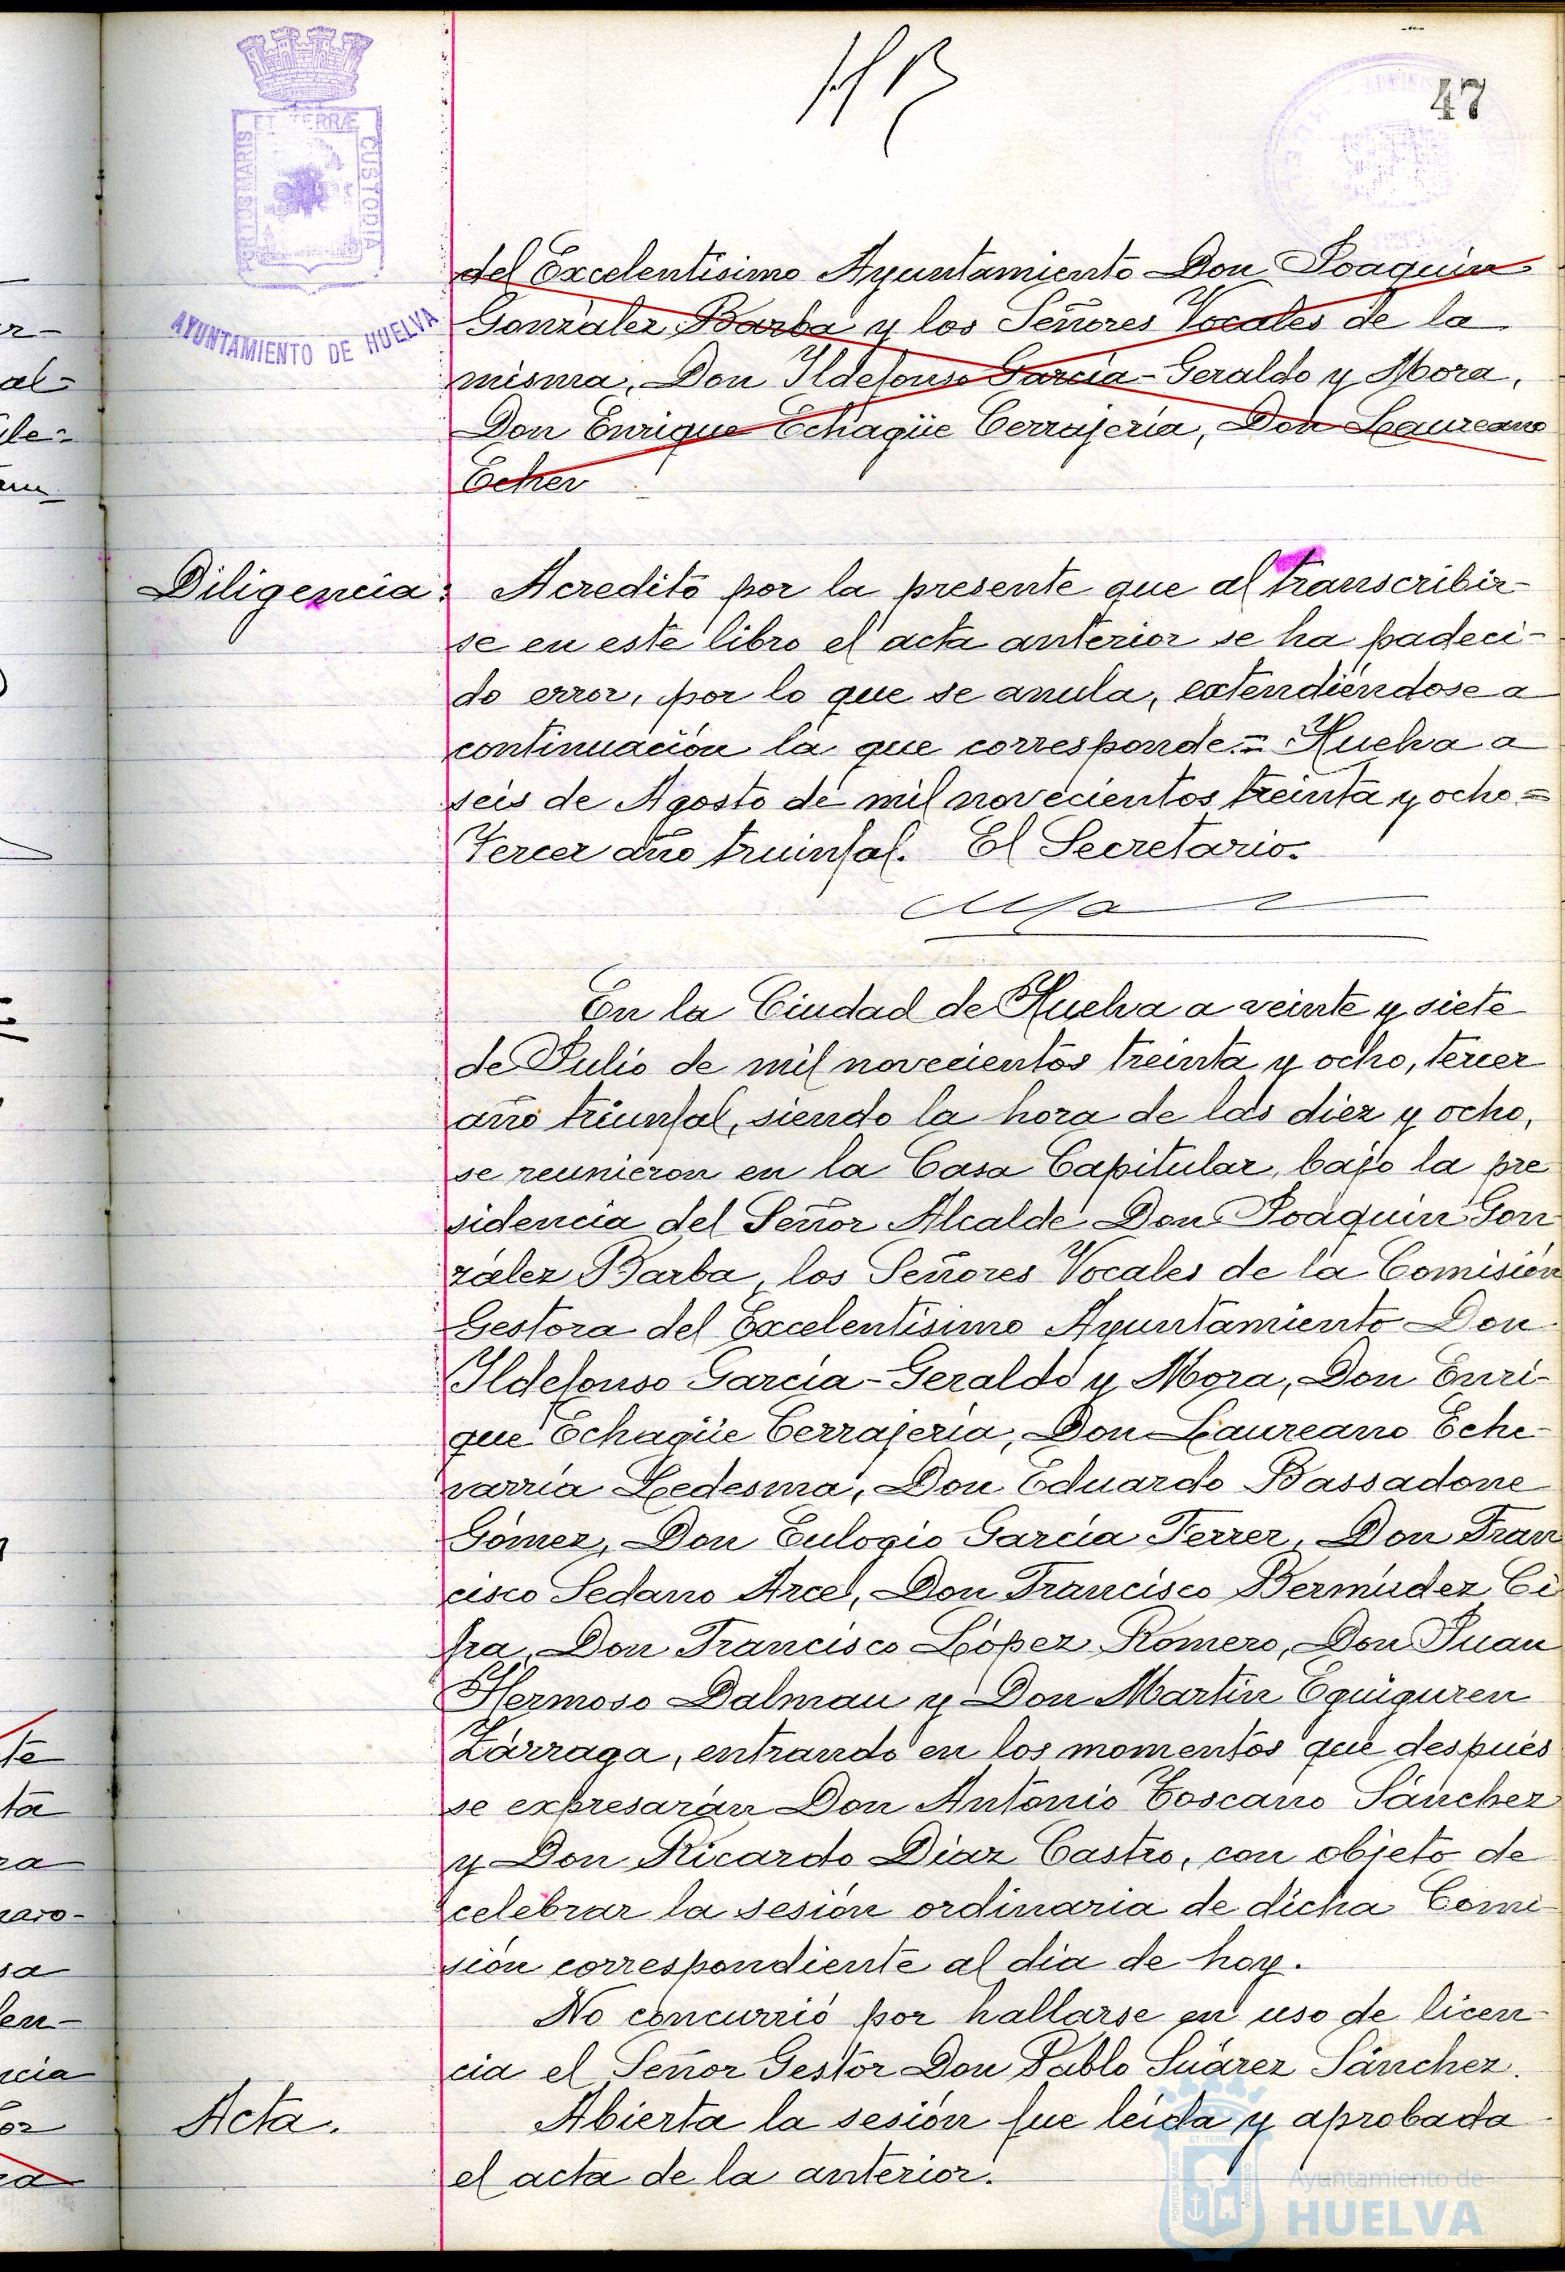 47
PORTUS MARIS
ET TERRÆ
CUSTODIA
AYUNTAMIENTO DE HUELVA
del Excelentísimo Ayuntamiento Don Joaquín
González Barba y los Señores Vocales de la
misma, Don Ildefonso García-Geraldo y Mora,
Don Enrique Echagüe Cerrajería, Don Laureano
Echev
Diligencia: Acredito por la presente que al transcribir-
se en este libro el acta anterior se ha padeci-
do error, por lo que se anula, extendiéndose a
continuación la que corresponde.= Huelva a
seis de Agosto de mil novecientos treinta y ocho=
Tercer año truinfal. El Secretario.
En la Ciudad de Huelva a veinte y siete
de Julio de mil novecientos treinta y ocho, tercer
año triunfal, siendo la hora de las diez y ocho,
se reunieron en la Casa Capitular, bajo la pre
sidencia del Señor Alcalde Don Joaquín Gon
zález Barba, los Señores Vocales de la Comisión
Gestora del Excelentísimo Ayuntamiento Don
Ildefonso García-Geraldo y Mora, Don Enri-
que Echagüe Cerrajería, Don Laureano Eche-
varría Ledesma, Don Eduardo Bassadone
Gómez, Don Eulogio García Ferrer, Don Fran
cisco Sedano Arce, Don Francisco Bermúdez Ci
fra, Don Francisco López Romero, Don Juan
Hermoso Dalmau y Don Martín Eguiguren
Zárraga, entrando en los momentos que después
se expresarán Don Antonio Toscano Sánchez
y Don Ricardo Díaz Castro, con objeto de
celebrar la sesión ordinaria de dicha Comi
sión correspondiente al día de hoy.
No concurrió por hallarse en uso de licen
cia el Señor Gestor Don Pablo Suárez Sánchez.
Acta. Abierta la sesión fue leída y aprobada
el acta de la anterior.
Ayuntamiento de
HUELVA